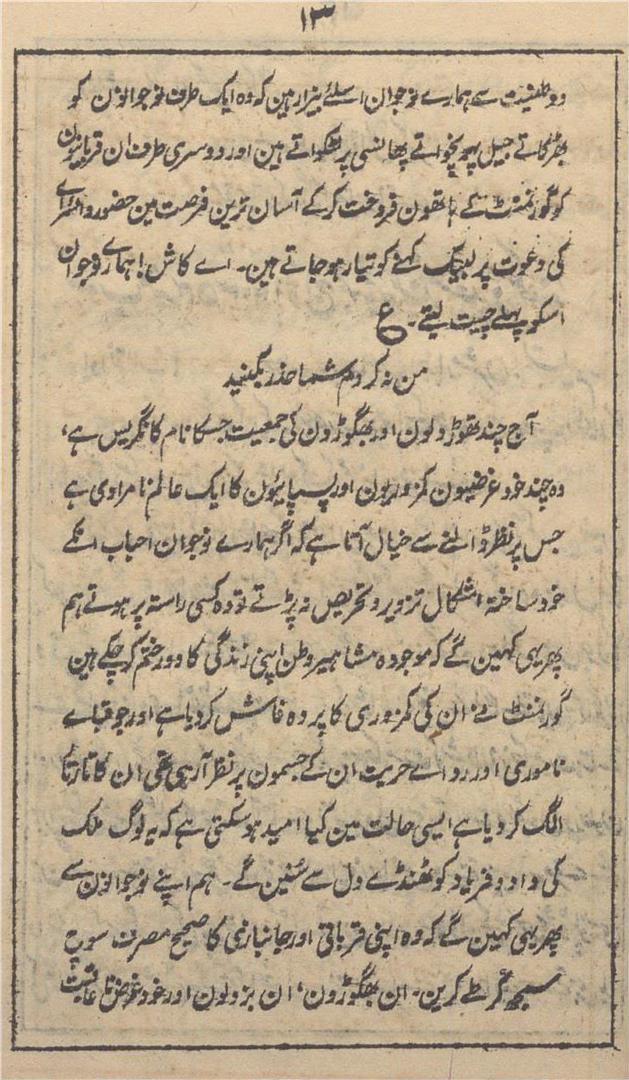 ۱۳
دوطنیت سے ہمارے نوجوان اسلئے بیزار ہین کہ وہ ایک طرف نوجوانون کو
بھڑکاتے جیل پہونچواتے پھانسی پر لٹکواتے ہین اور دوسری طرف ان قربانیون
کو گورنمنٹ کے ہاتھون فروخت کرکے آسان ترین فرصت مین حضور وائسرائے
کی دعوت پر لبیک کہنے کو تیار ہوجاتے ہین۔ اے کاش! ہمارے نوجوان
اسکو پہلے چیت لیتے۔ ع
من نہ کردم شما حذر بکنید
آج چند تھوڑدلون اور بھگوڑون کی جمعیت جسکا نام کانگریس ہے،
وہ چند خودغرضیون کمزوریون اور پسپائیون کا ایک عالم نامرادی ہے
جس پر نظر ڈالنے سے خیال آتا ہے کہ اگر ہمارے نوجوان احباب انکے
خود ساختہ اشکال تزویر و تحریص نہ پڑتے تو وہ کسی راستہ پر ہوتے ہم
پھر یہی کہین گے کہ موجودہ مشاہیر وطن اپنی زندگی کا دور ختم کرچکے ہین
گورنمنٹ نے ان کی کمزوری کا پردہ فاش کردیا ہے اور جو قبائے
ناموری اور ردائے حریت ان کے جسمون پر نظر آرہی تھی ان کا تار تار
الگ کردیا ہے ایسی حالت مین کیا امید ہوسکتی ہے کہ یہ لوگ ملک
کی داد و فریاد کو ٹھنڈے دل سے سُنین گے۔ ہم اپنے نوجوانون سے
پھر یہی کہین گے کہ وہ اپنی قربانی اور جانبازی کا صحیح مصرف سوچ
سمجھ کر طے کرین۔ ان بھگوڑون، ان بزدلون اور خودغرض